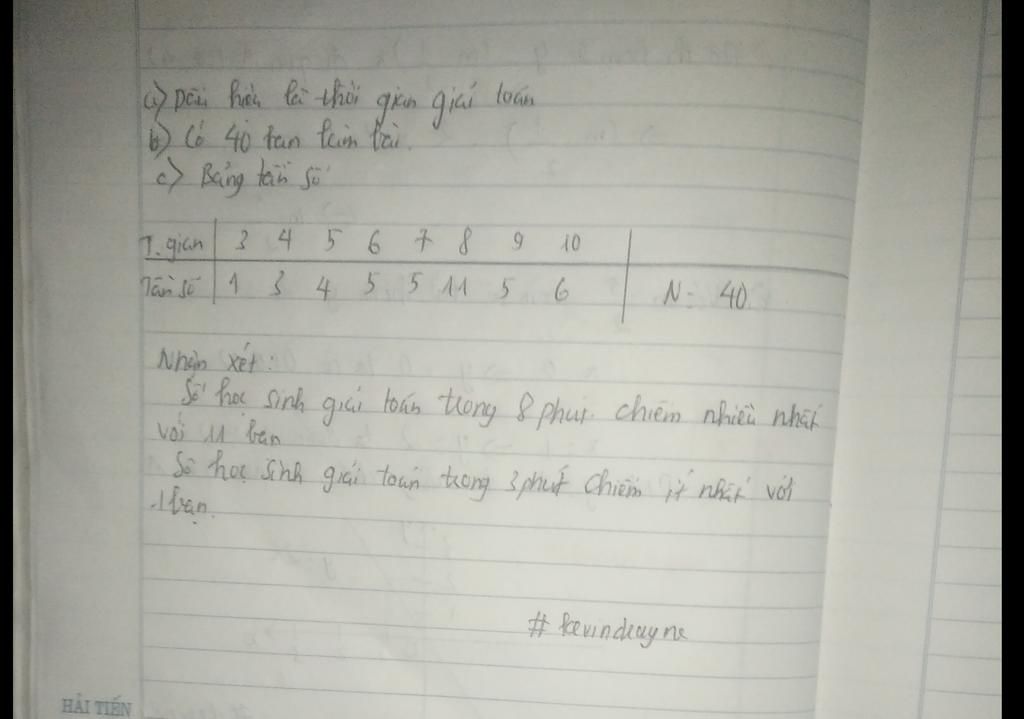 a) Dấu hiệu là thời gian giải toán
b) Có 40 bạn làm bài.
c) Bảng tần số
T. gian 3 4 5 6 7 8 9 10
Tần số 1 3 4 5 5 11 5 6 N = 40
Nhận xét:
Số học sinh giải toán trong 8 phút chiếm nhiều nhất
với 11 bạn
Số học sinh giải toán trong 3 phút chiếm ít nhất với
1 bạn.
# kevindwayne
HẢI TIẾN